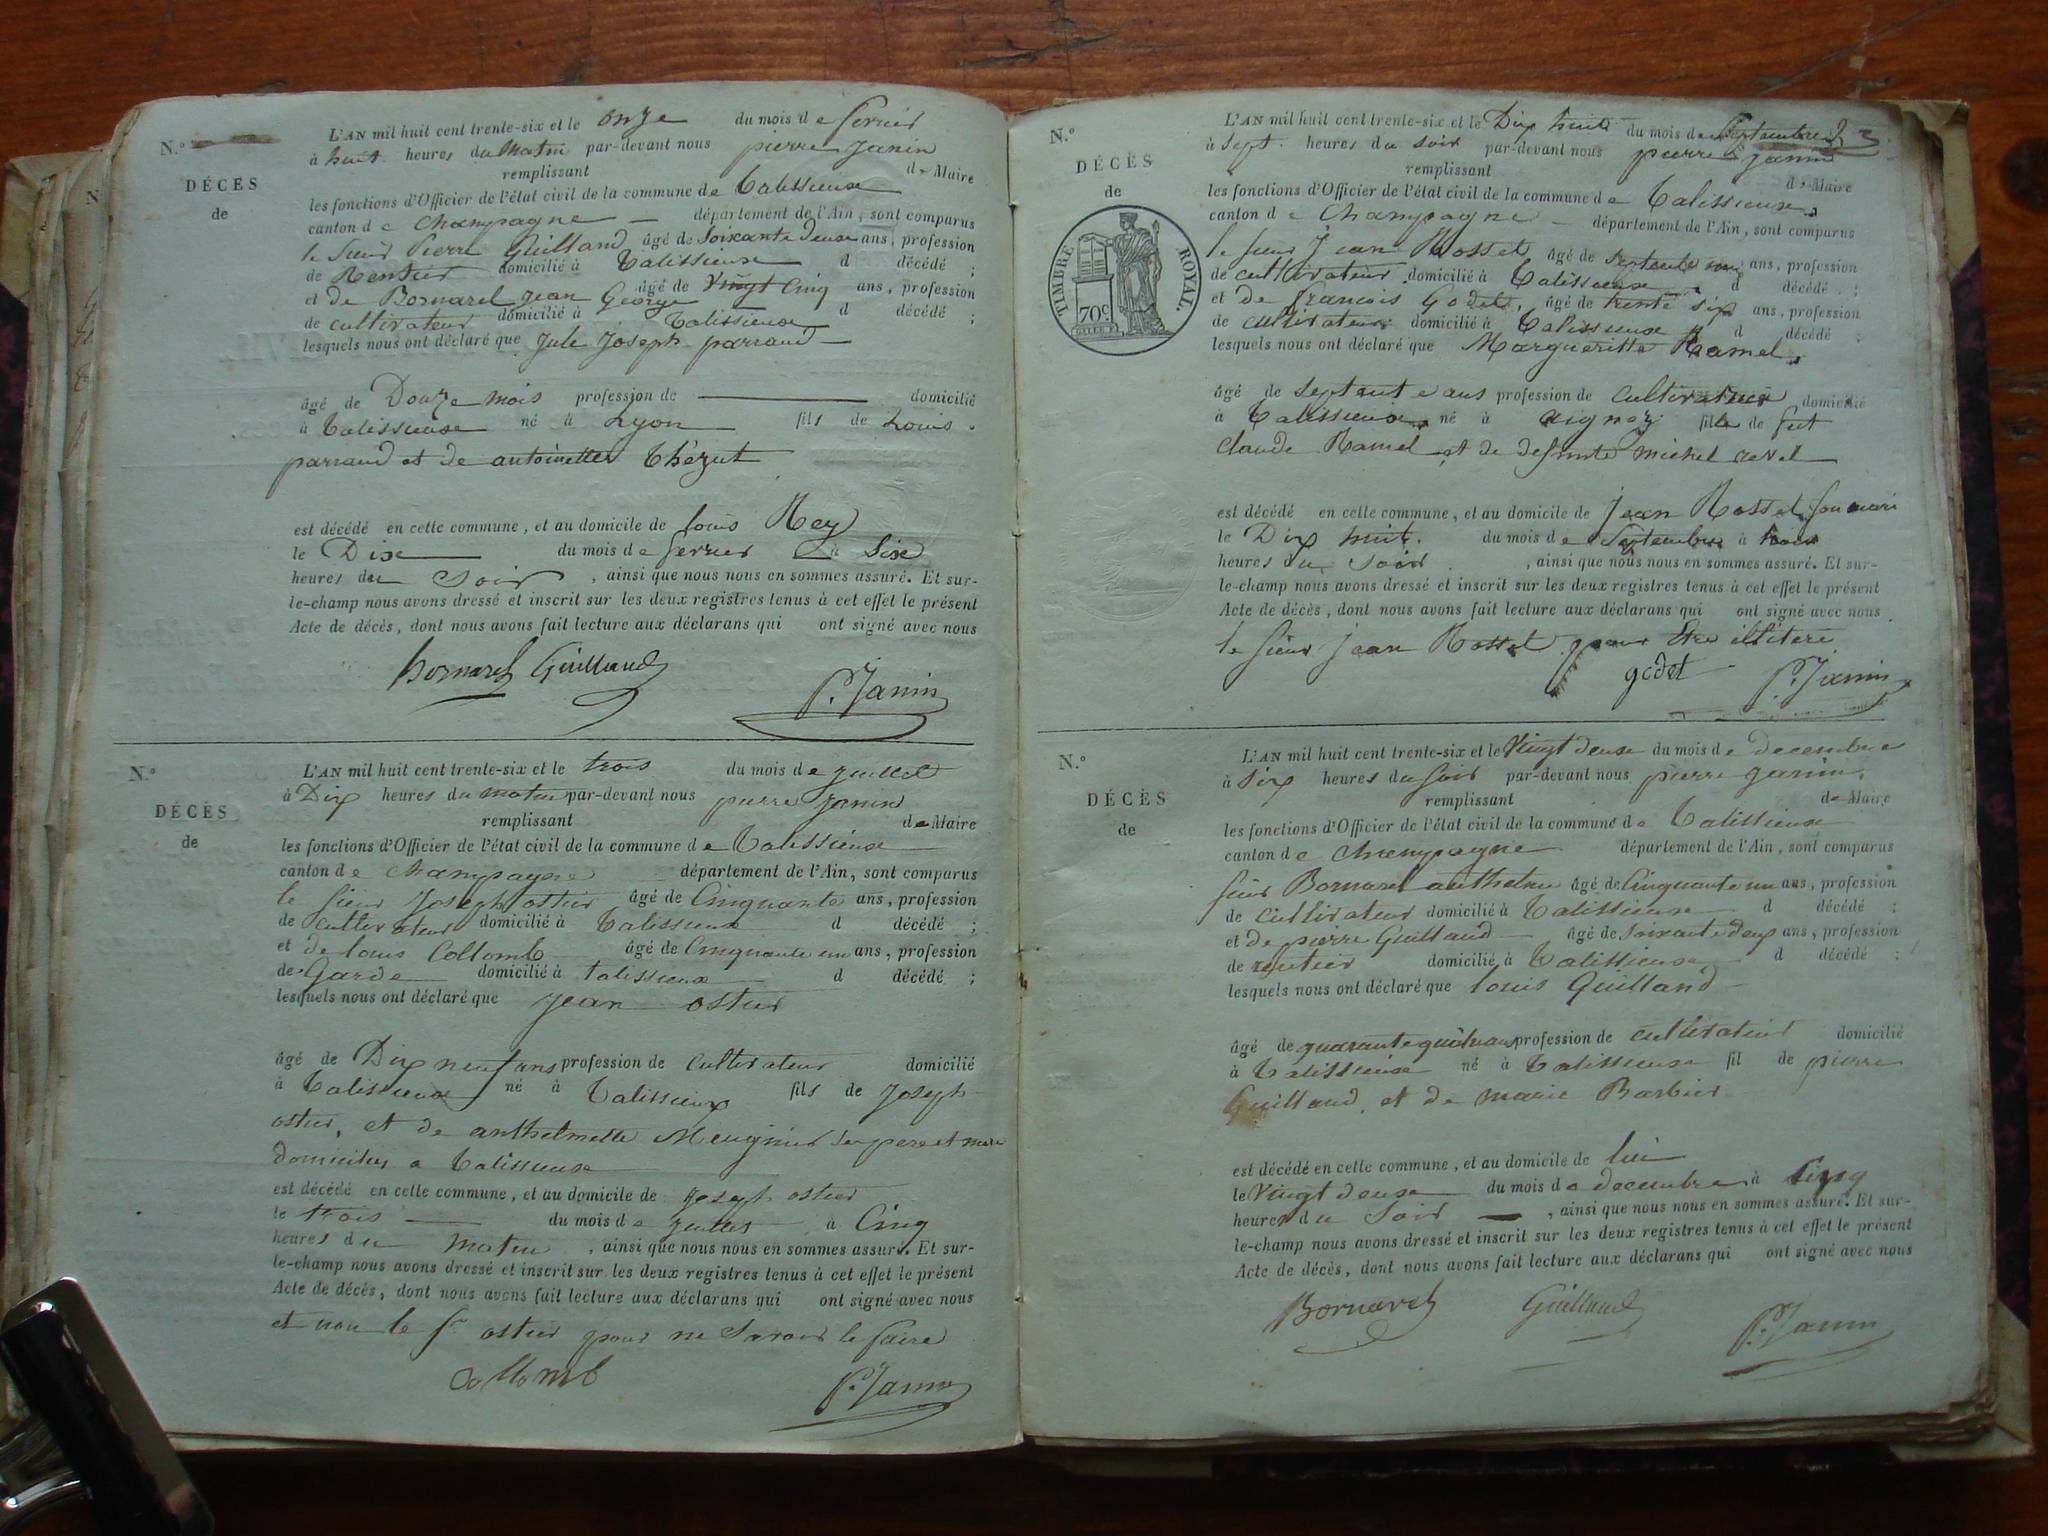 N.°
DÉCÈS
de
L'AN mil huit cent trente-six et le onze du mois de fevrier
à huit heures du matin par-devant nous pierre Janin
remplissant de Maire
les fonctions d'Officier de l'état civil de la commune de Talissieux
canton de Champagne département de l'Ain, sont comparus
le sieur Pierre Guilland âgé de soixante deux ans, profession
de Rentier domicilié à Talissieux d décédé ;
et de Bornarel jean George âgé de Vingt Cinq ans, profession
de cultivateur domicilié à Talissieux d décédé ;
lesquels nous ont déclaré que Jule Joseph parraud
âgé de Douze mois profession de domicilié
à Talissieux né à Lyon fils de Louis
parraud et de antoinette Thézut
est décédé en cette commune, et au domicile de louis Rey
le Dix du mois de fevrier à Six
heures du Soir, ainsi que nous nous en sommes assuré. Et sur-
le-champ nous avons dressé et inscrit sur les deux registres tenus à cet effet le présent
Acte de décès, dont nous avons fait lecture aux déclarans qui ont signé avec nous
Bornarel Guilland P. Janin
N.°
DÉCÈS
de
L'AN mil huit cent trente-six et le trois du mois de juillet
à Dix heures du matin par-devant nous pierre Janin
remplissant de Maire
les fonctions d'Officier de l'état civil de la commune de Talissieux
canton de Champagne département de l'Ain, sont comparus
le sieur Joseph ostier âgé de Cinquante ans, profession
de cultivateur domicilié à Talissieux d décédé ;
et de louis Collomb âgé de Cinquante un ans, profession
de Garde domicilié à talissieux d décédé ;
lesquels nous ont déclaré que jean ostier
âgé de Dix neuf ans profession de cultivateur domicilié
à Talissieux né à Talissieux fils de Joseph
ostier, et de anthelmette Meugnier ses pere et mere
domicilies a Talissieux
est décédé en cette commune, et au domicile de Joseph ostier
le trois du mois de juillet à Cinq
heures du matin, ainsi que nous nous en sommes assuré. Et sur-
le-champ nous avons dressé et inscrit sur les deux registres tenus à cet effet le présent
Acte de décès, dont nous avons fait lecture aux déclarans qui ont signé avec nous
et non le Sr ostier pour ne Savoir le faire
Collomb P. Janin
N.°
DÉCÈS
de
TIMBRE ROYAL.
70c
L'AN mil huit cent trente-six et le Dix huit du mois de Septembre
à sept heures du soir par-devant nous pierre Janin
remplissant de Maire
les fonctions d'Officier de l'état civil de la commune de Talissieux
canton de Champagne département de l'Ain, sont comparus
le sieur Jean Rosset âgé de ans, profession
de cultivateur domicilié à Talissieux d décédé ;
et de francois Godet, âgé de trente six ans, profession
de cultivateur domicilié à Talissieux d décédé ;
lesquels nous ont déclaré que Margueritte Ramel
âgé de septante ans profession de cultivatrice domicilié
à Talissieux né à aignoz fille de feu
claude Ramel et de defunte michel revel
est décédé en cette commune, et au domicile de jean Rosset son mari
le Dix huit du mois de Septembre à
heures du Soir, ainsi que nous nous en sommes assuré. Et sur-
le-champ nous avons dressé et inscrit sur les deux registres tenus à cet effet le présent
Acte de décès, dont nous avons fait lecture aux déclarans qui ont signé avec nous
le sieur jean Rosset pour Etre illiteré
godet P. Janin
N.°
DÉCÈS
de
L'AN mil huit cent trente-six et le Vingt deux du mois de decembre
à six heures du soir par-devant nous pierre Janin
remplissant de Maire
les fonctions d'Officier de l'état civil de la commune de Talissieux
canton de Champagne département de l'Ain, sont comparus
sieur Bornarel anthelme âgé de Cinquante un ans, profession
de cultivateur domicilié à Talissieux d décédé ;
et de pierre Guilland âgé de soixante deux ans, profession
de rentier domicilié à Talissieux d décédé ;
lesquels nous ont déclaré que louis Guilland
âgé de quarante quatre ans profession de cultivateur domicilié
à Talissieux né à Talissieux fil de pierre
Guilland, et de marie Barbier
est décédé en cette commune, et au domicile de lui
le Vingt deux du mois de decembre à Cinq
heures du Soir, ainsi que nous nous en sommes assuré. Et sur-
le-champ nous avons dressé et inscrit sur les deux registres tenus à cet effet le présent
Acte de décès, dont nous avons fait lecture aux déclarans qui ont signé avec nous
Bornarel Guilland P. Janin